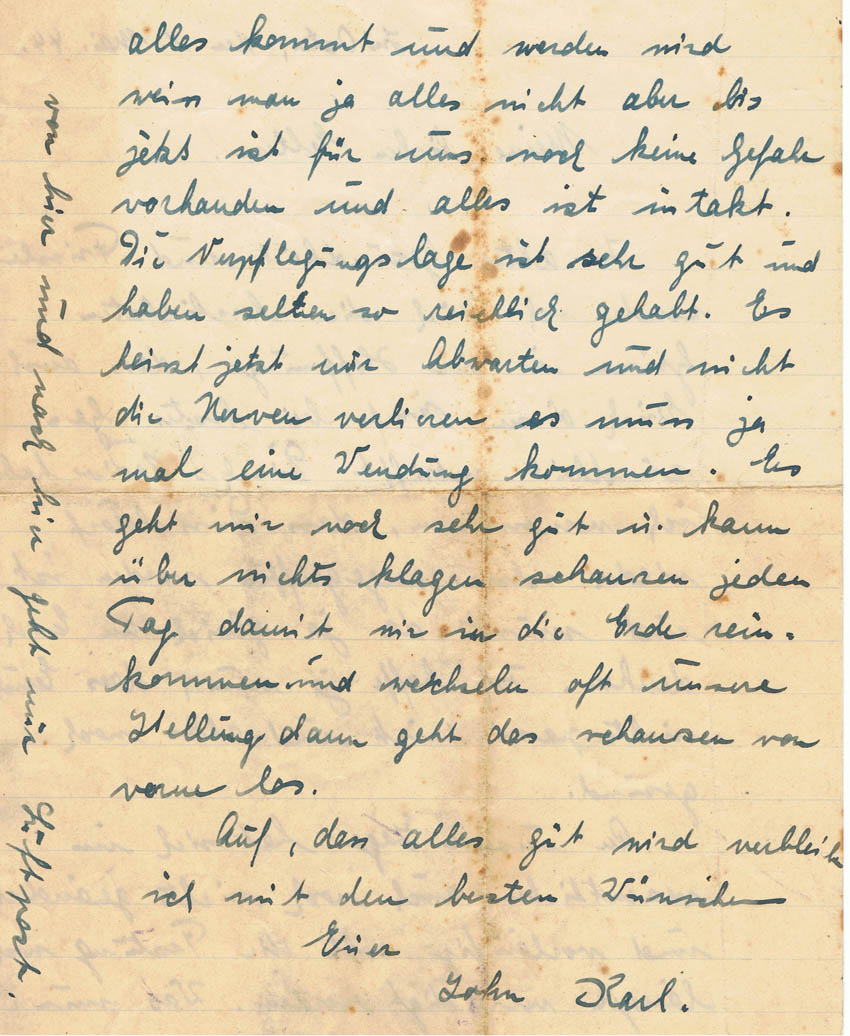 alles kommt und werden wird
weiss man ja alles nicht aber bis
jetzt ist für uns noch keine Gefahr
vorhanden und alles ist intakt.
Die Verpflegungslage ist sehr gut und
haben selten so reichlich gehabt. Es
heisst jetzt nur Abwarten und nicht
die Nerven verlieren es muss ja
mal eine Wendung kommen. Es
geht mir noch sehr gut u. kann
über nichts klagen schanzen jeden
Tag damit wir in die Erde rein-
kommen und wechseln oft unsere
Stellung dann geht das schanzen von
vorne los.
Auf, dass alles gut wird verbleibe
ich mit den besten Wünschen
Euer
Sohn Karl.
von hier und nach hier geht nur Luftpost.